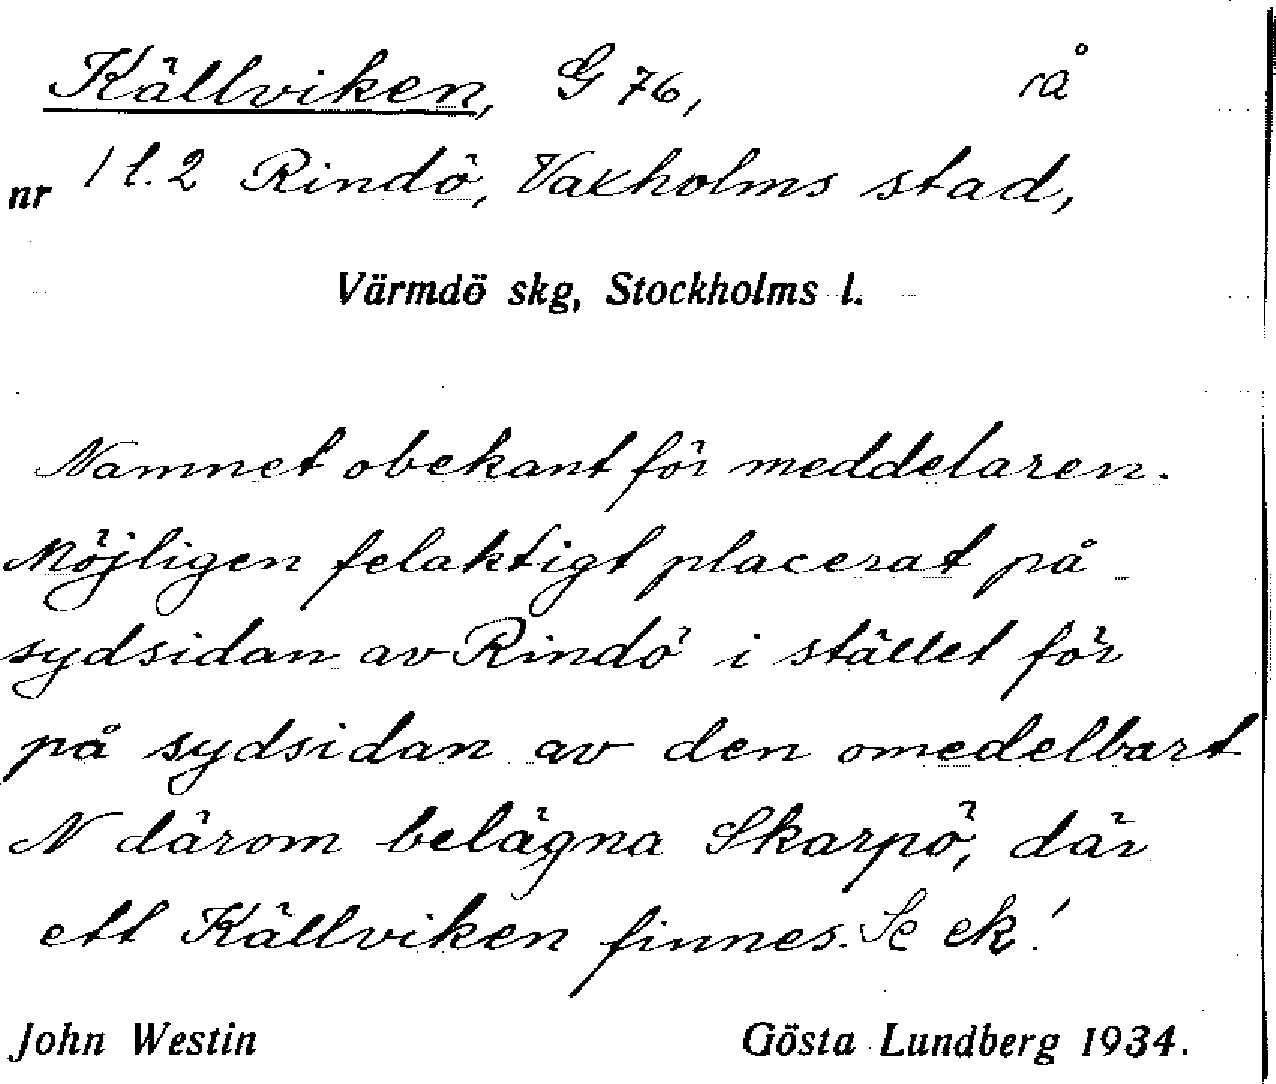 Källviken, G 76, rå
nr 1 l. 2 Rindö, Vaxholms stad,
Värmdö skg, Stockholms l.
Namnet obekant för meddelaren.
Möjligen felaktigt placerat på
sydsidan av Rindö i stället för
på sydsidan av den omedelbart
N därom belägna Skarpö, där
ett Källviken finnes. Se ek!
John Westin Gösta Lundberg 1934.